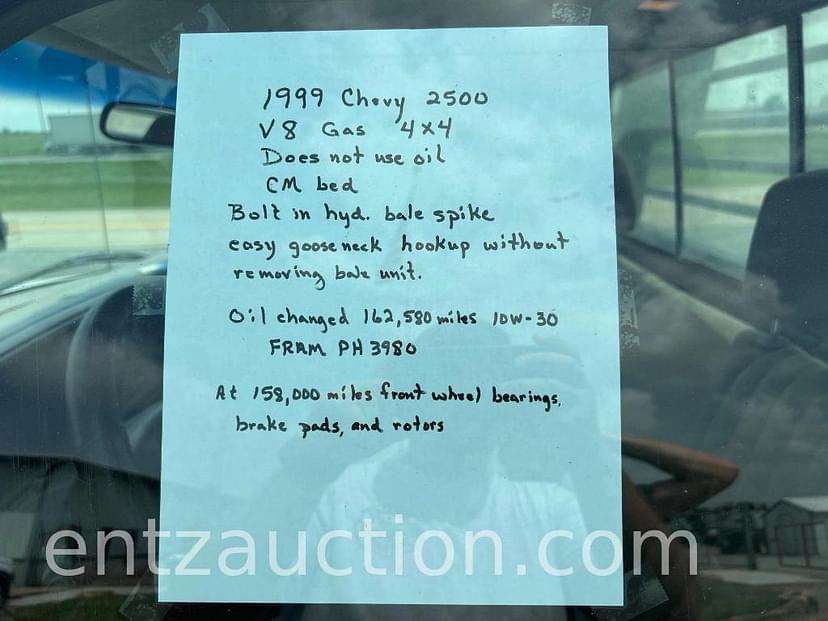 1999 Chevy 2500
V8 Gas 4x4
Does not use oil
CM bed
Bolt in hyd. bale spike
easy gooseneck hookup without
removing bale unit.
Oil changed 162,580 miles 10W-30
FRAM PH3980
At 158,000 miles front wheel bearings,
brake pads, and rotors
entzauction.com